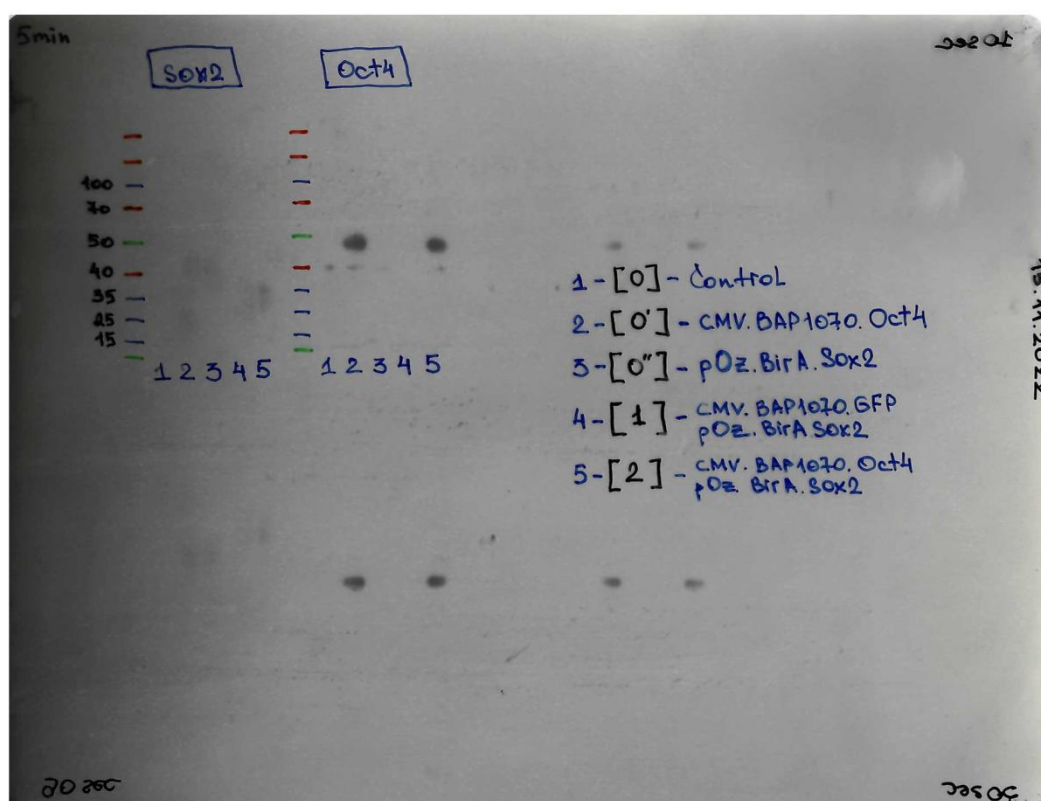 5min
10 sec
Sox2
Oct4
100
70
50
40
35
25
15
1 2 3 4 5
1 2 3 4 5
1-[0]- Control
2-[0']- CMV.BAP1070.Oct4
3-[0"]- pOz.BirA.Sox2
4-[1]- CMV.BAP1070.GFP
pOz.BirA.Sox2
5-[2]- CMV.BAP1070.Oct4
pOz.BirA.Sox2
.11.2022
30 sec